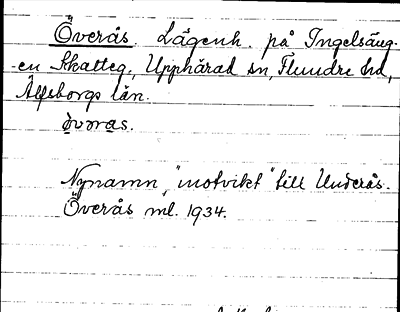 Överås. Lägenh. på Ingelsäng-
-en Skatteg., Upphärad sn, Flundre hd,
Älfsborgs län.
òvəras.
Nynamn, "motvikt" till Underås.
Överås ml. 1934.